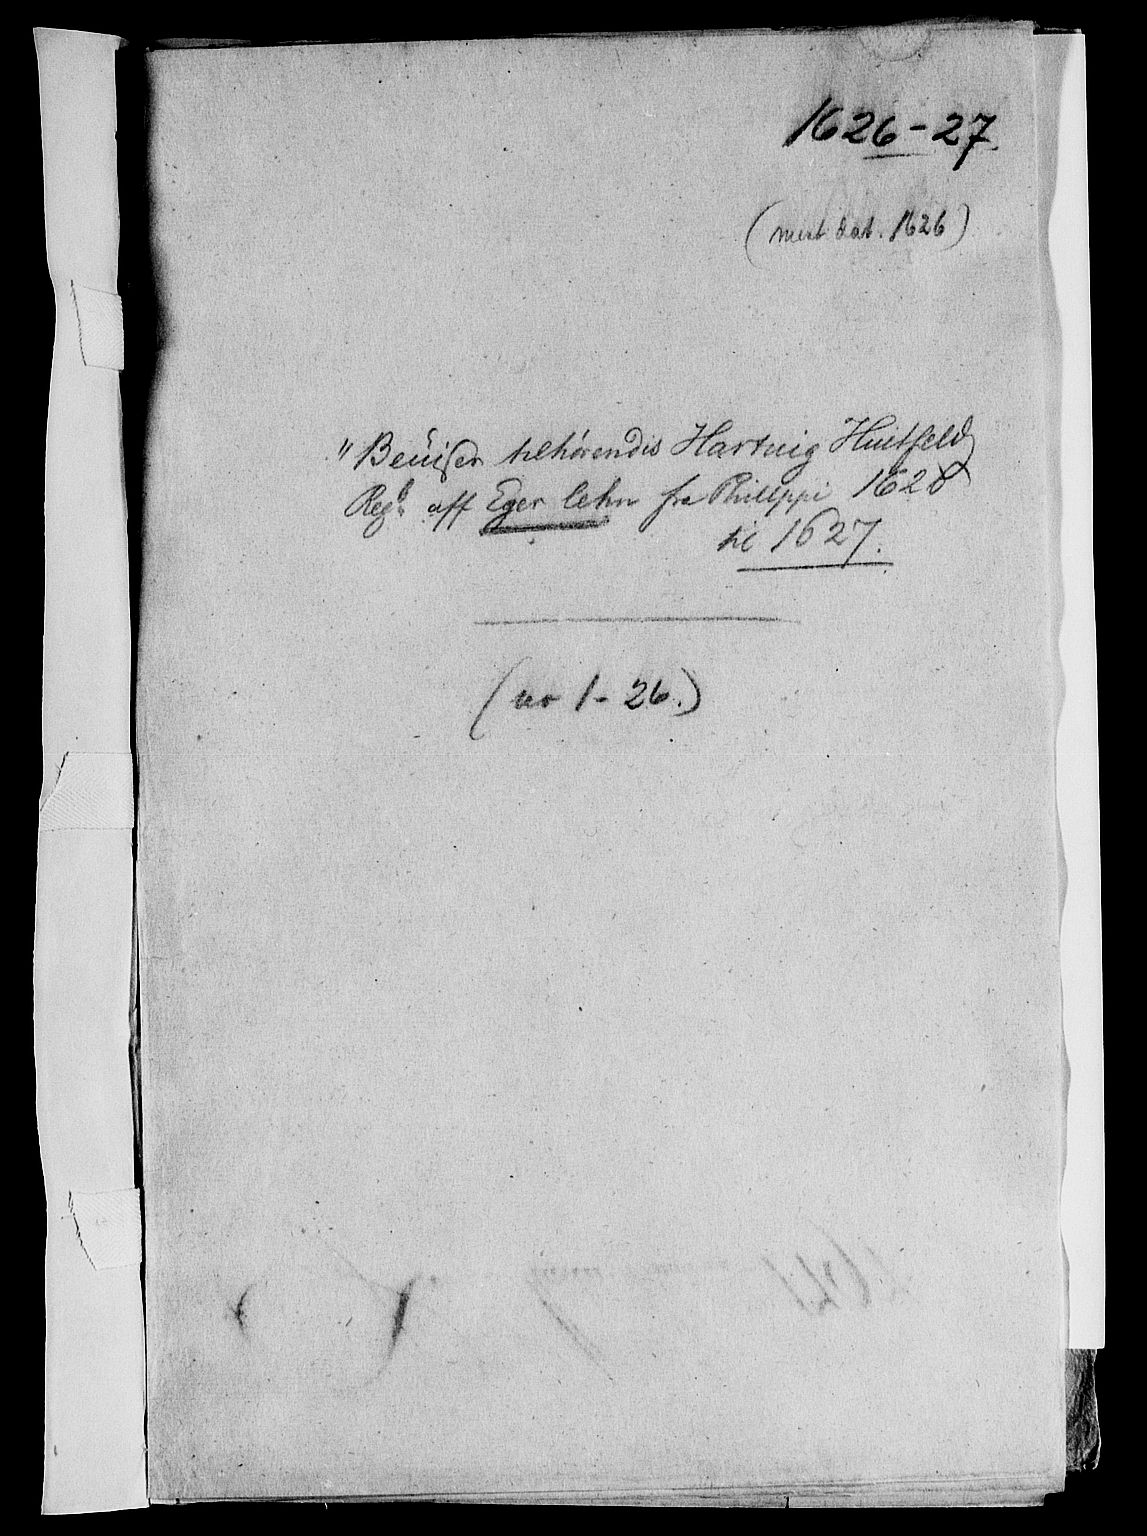 1626-27.
(mest dat. 1626)
"Beuiser tilhörendis Hartuig Huitfeld
Regb. aff Eger lehn fra Philippi 1626
til 1627.
(nr 1-26.)